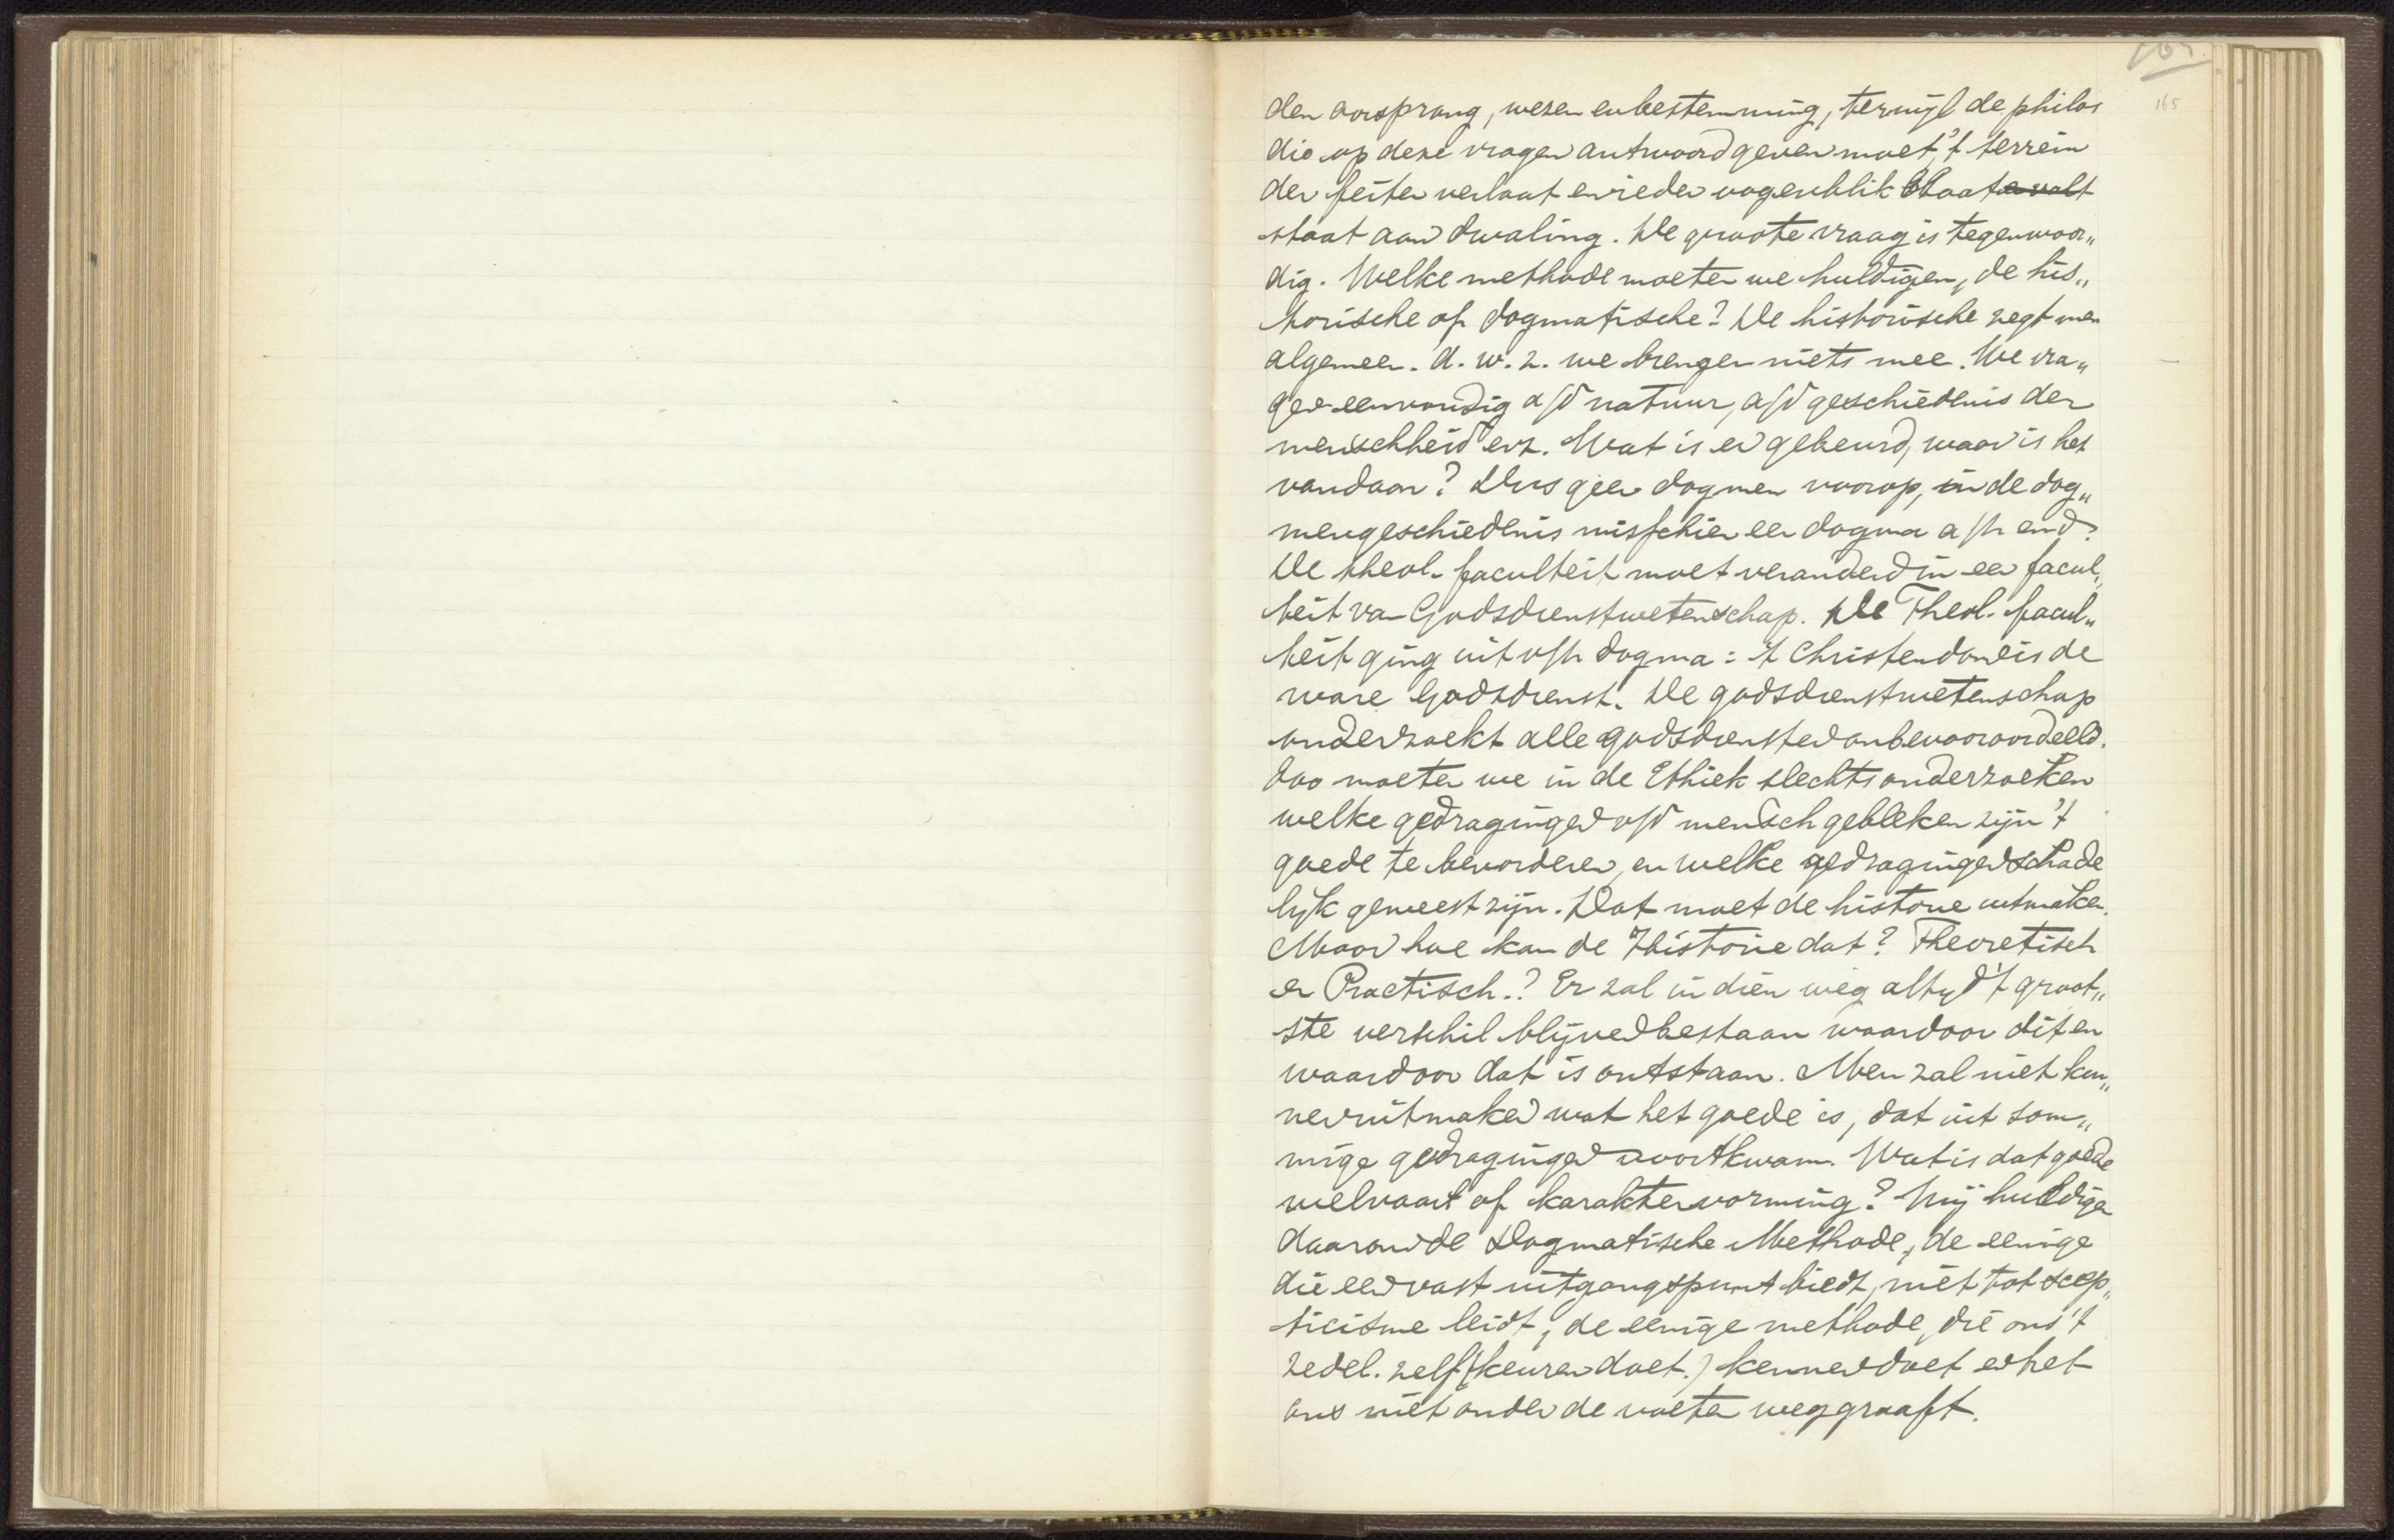 165
den oorsprong, wezen en bestemming, terwijl de philos
die op deze vragen antwoord geven moet, 't terrein
der feiten verlaat en ieder oogenblik bloot
staat aan dwaling. De groote vraag is tegenwoor„
dig. Welke methode moeten we huldigen, de his„
torische of dogmatische? De historische zegt men
algemeen. d. w. z. we brengen niets mee. We vra„
gen eenvoudig a/d natuur, a/d geschiedenis der
menschheid enz. Wat is er gebeurd, waar is het
vandaan? Dus geen dogmen voorop, in de dog„
mengeschiedenis misschien een dogma a/h eind.
De theol. faculteit moet veranderd in een facul„
teit van Godsdienstwetenschap. De Theol. facul„
teit ging uit v/h dogma: 't Christendom is de
ware Godsdienst. De godsdienstwetenschap
onderzoekt alle godsdiensten onbevooroordeeld.
Zoo moeten we in de Ethiek slechts onderzoeken
welke gedragingen v/d mensch gebleken zijn 't
goede te bevorderen, en welke gedragingen schade
lijk geweest zijn. Dat moet de historie uitmaken.
Maar hoe kan de Historie dat? Theoretisch
en Practisch.? Er zal in dien weg altijd 't groot„
ste verschil blijven bestaan waardoor dit en
waardoor dat is ontstaan. Men zal niet kun„
nen uitmaken wat het goede is, dat uit som„
mige gedragingen voortkwam. Wat is dat goede
welvaart of karaktervorming? Wij huldigen
daarom de Dogmatische Methode, de eenige
die een vast uitgangspunt biedt, niet tot scep„
ticisme leidt, de eenige methode, die ons 't
zedel. zelf (keuren doet.) kennen doet en het
ons niet onder de voeten weggraaft.